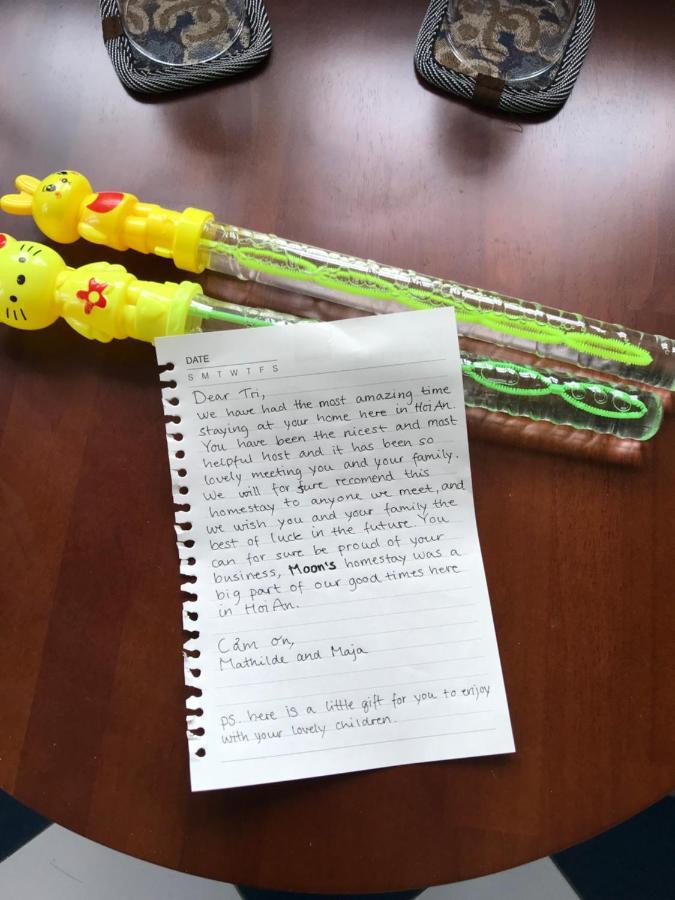 DATE
S M T W T F S
Dear Tri,
we have had the most amazing time
staying at your home here in Hoi An.
You have been the nicest and most
helpful host and it has been so
lovely meeting you and your family.
We will for sure recomend this
homestay to anyone we meet, and
we wish you and your family the
best of luck in the future. You
can for sure be proud of your
business, Moon's homestay was a
big part of our good times here
in Hoi An.
Cảm ơn,
Mathilde and Maja
ps. here is a little gift for you to enjoy
with your lovely children.